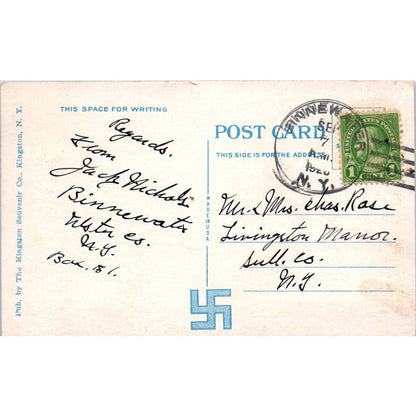 THIS SPACE FOR WRITING
Regards.
From
Jack Nichols
Binnewater
Ulster Co.
N.Y.
Box. 81.
Pub. by The Kingston Souvenir Co., Kingston, N. Y.
POST CARD
THIS SIDE IS FOR THE ADDRESS
MADE IN USA
BINNEWATER
SEP
7
A.M.
N. Y.
UNITED STATES POSTAGE
1 CENT 1
Mr. & Mrs. Chas. Rose
Livingston Manor.
Sull. Co.
N.Y.